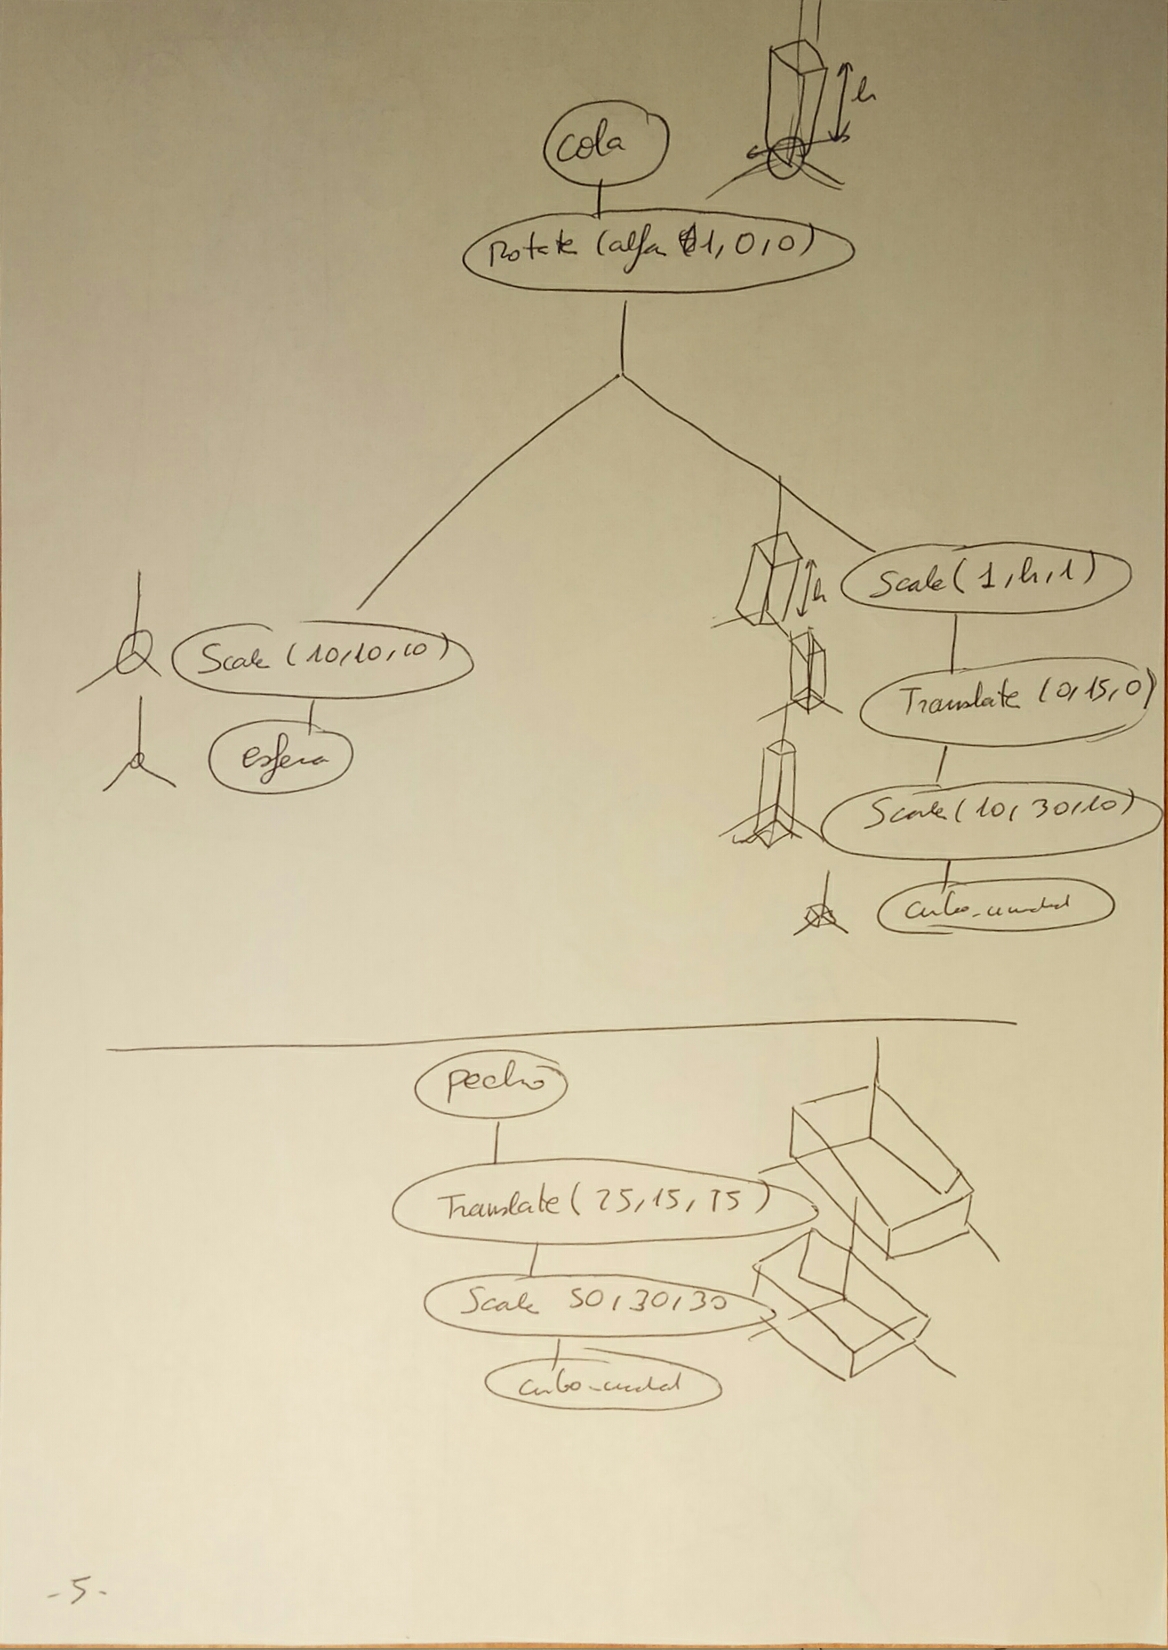 h
cola
Rotate (alfa 1,0,0)
Scale (1,h,1)
h
Scale (10,10,10)
Translate (0,15,0)
esfera
Scale (10,30,10)
cubo_unidad
pecho
Translate (25,15,75)
Scale 50,30,30
cubo_unidad
-5-